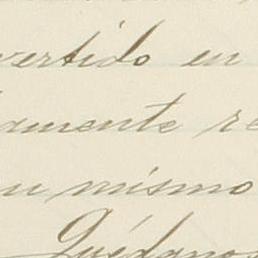 vertido en
amente re
su mismo
Quédanos